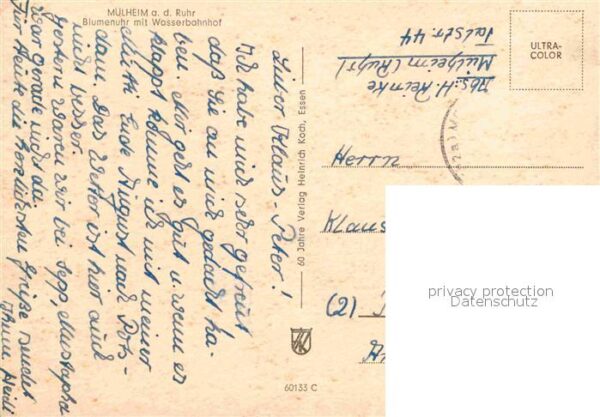 MÜLHEIM a. d. Ruhr
Blumenuhr mit Wasserbahnhof
Lieber Klaus-Peter!
Ich habe mich sehr gefreut
daß Sie an mich gedacht ha-
ben. Mir geht es gut u. wenn es
klappt komme ich mit meiner
Mutti Ende August nach Pots-
dam. Das Wetter ist hier auch
nicht besser.
Gestern waren wir bei Sepp, Mustapha
war gerade nicht da.
Für Heute die herzlichsten Grüße sendet
Ihnen Heidi
60 Jahre Verlag Heinrich Koch, Essen
60133 C
Abs: H. Reinke
Mülheim (Ruhr)
Talstr. 44
ULTRA-
COLOR
Herrn
Klaus
(2)
privacy protection
Datenschutz